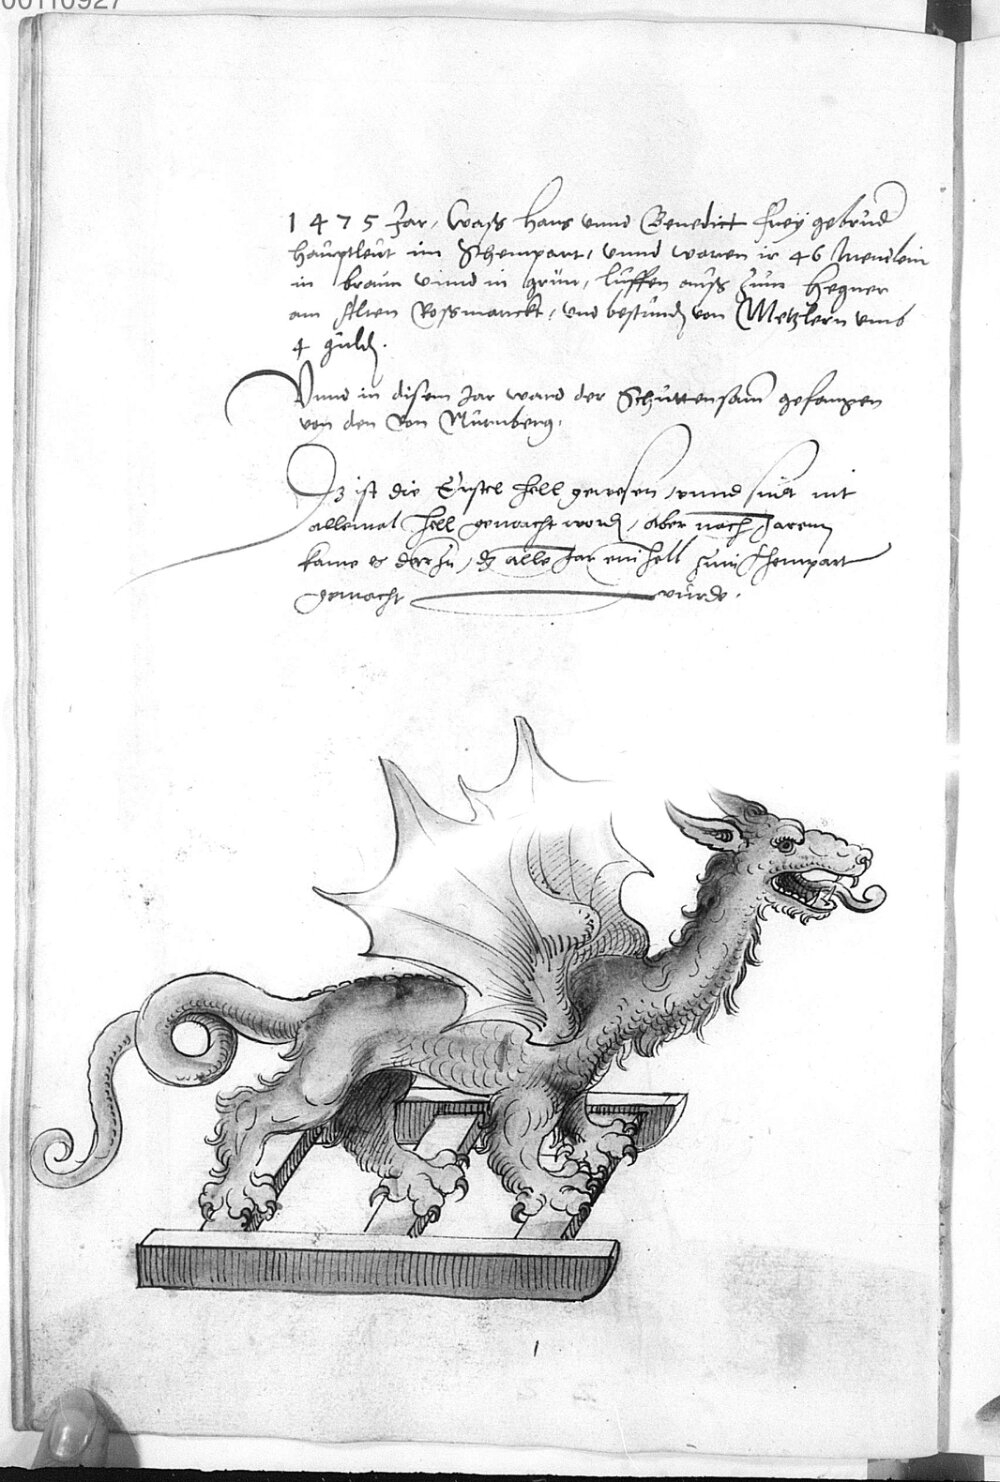 00110927
1475 Jar, Wass Hans vnnd Benedict Frey gebrüd
haüptleüt im Schempart, vnnd waren ir 46 Mendlein
in braün vnnd in grün, lüffen aüss züm Hegner
am Alten Rossmarckt, vnd bestünd von Metzlern vmb
4 güld.
Vnnd in disem Jar ward der Schüttensam gefangen
von den von Nürmberg.
Dz ist die Erstel hell gewesen, vnnd sindt nit
allemal hell gemacht word, aber nach Jaren
kame es darzü, dz alle Jar ein hell züm schempart
gemacht würde.
1